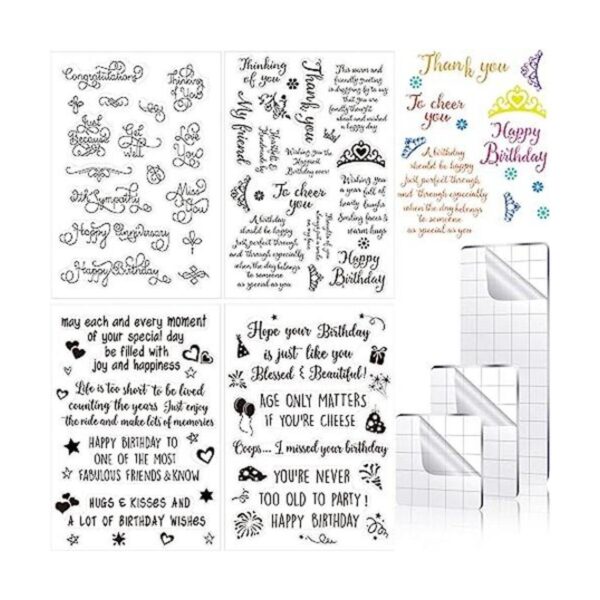 Congratulations
Thinking
of You
Just
Because
Get
Well
Love
You
With Sympathy
Miss
You
Happy Anniversary
Happy Birthday
Thinking
of you
My friend
Thank you
Heartfelt &
Handmade by
This warm and
friendly greeting
is dropping by to say
that you are
fondly thought
about and wished
a happy day
Wishing you the
Happiest
Birthday ever!
To cheer
you
A birthday
should be happy
Just perfect through
and Through especially
when the day belongs
to someone
as special as you
Wishing you
a year full of
hearty laughs
Smiling faces &
warm hugs
Happy
Birthday
Thank you
To cheer
you
Happy
Birthday
A birthday
should be happy
Just perfect through
and Through especially
when the day belongs
to someone
as special as you
may each and every moment
of your special day
be filled with
joy and happiness
Life is too short to be lived
counting the years Just enjoy
the ride and make lots of memories
HAPPY BIRTHDAY TO
ONE OF THE MOST
FABULOUS FRIENDS & KNOW
HUGS & KISSES AND
A LOT OF BIRTHDAY WISHES
Hope your Birthday
is just like you
Blessed & Beautiful!
AGE ONLY MATTERS
IF YOU'RE CHEESE
Ooops... I missed your birthday
YOU'RE NEVER
TOO OLD TO PARTY!
HAPPY BIRTHDAY